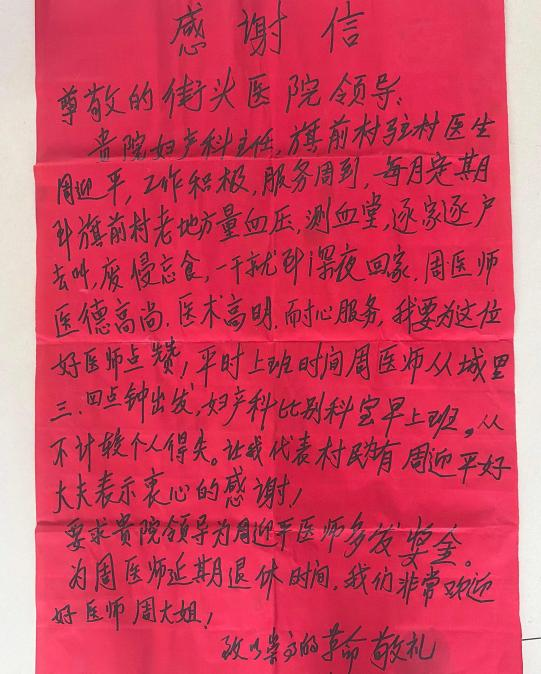 感谢信
尊敬的街头医院领导:
贵院妇产科主任,旗前村驻村医生
周迎平,工作积极,服务周到,每月定期
到旗前村老地方量血压,测血堂,逐家逐户
去叫,废侵忘食,一干就到深夜回家.周医师
医德高尚.医术高明.耐心服务,我要为这位
好医师点赞,平时上班时间周医师从城里
三.四点钟出发,妇产科比别科室早上班,从
不计较个人得失。让我代表村民有周迎平好
大夫表示衷心的感谢!
要求贵院领导为周迎平医师多发奖金。
为周医师延期退休时间,我们非常欢迎
好医师周大姐!
致以崇高的革命敬礼